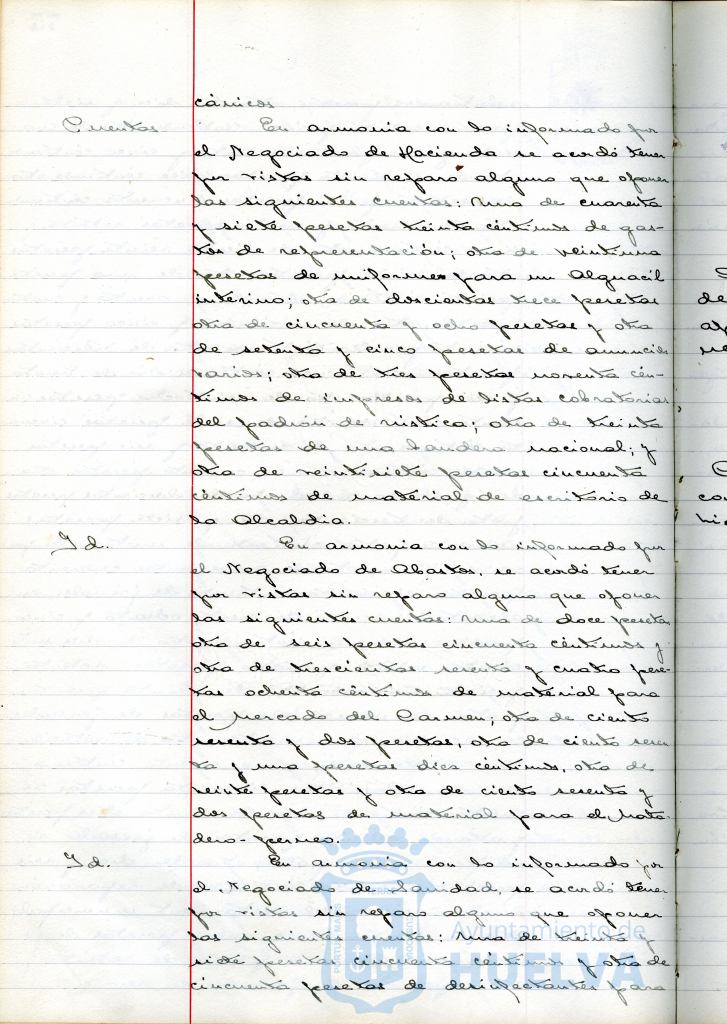 cánicos
Cuentas En armonia con lo informado por
el Negociado de Hacienda se acordó tener
por vistas sin reparo alguno que oponer
las siguientes cuentas: una de cuarenta
y siete pesetas treinta céntimos de gas-
tos de representación; otra de veintiuna
pesetas de uniformes para un Alguacil
interino; otra de doscientas trece pesetas
otra de cincuenta y ocho pesetas y otra
de setenta y cinco pesetas de anuncios
varios; otra de tres pesetas noventa cén-
timos de impresos de listas cobratorias
del padrón de rústica; otra de treinta
pesetas de una bandera nacional; y
otra de veintisiete pesetas cincuenta
céntimos de material de escritorio de
la Alcaldia.
Id. En armonia con lo informado por
el Negociado de Abastos, se acordó tener
por vistas sin reparo alguno que oponer
las siguientes cuentas: una de doce pesetas
otra de seis pesetas cincuenta céntimos y
otra de trescientas sesenta y cuatro pese-
tas ochenta céntimos de material para
el Mercado del Carmen; otra de ciento
sesenta y dos pesetas, otra de ciento sesen
ta y una pesetas diez céntimos, otra de
veinte pesetas y otra de ciento sesenta y
dos pesetas de material para el Mata-
dero-permeo.
Id. En armonia con lo informado por
el Negociado de Sanidad, se acordó tener
por vistas sin reparo alguno que oponer
las siguientes cuentas: una de treinta y
siete pesetas cincuenta céntimos y otra de
cincuenta pesetas de desinfectantes para
Ayuntamiento de
HUELVA